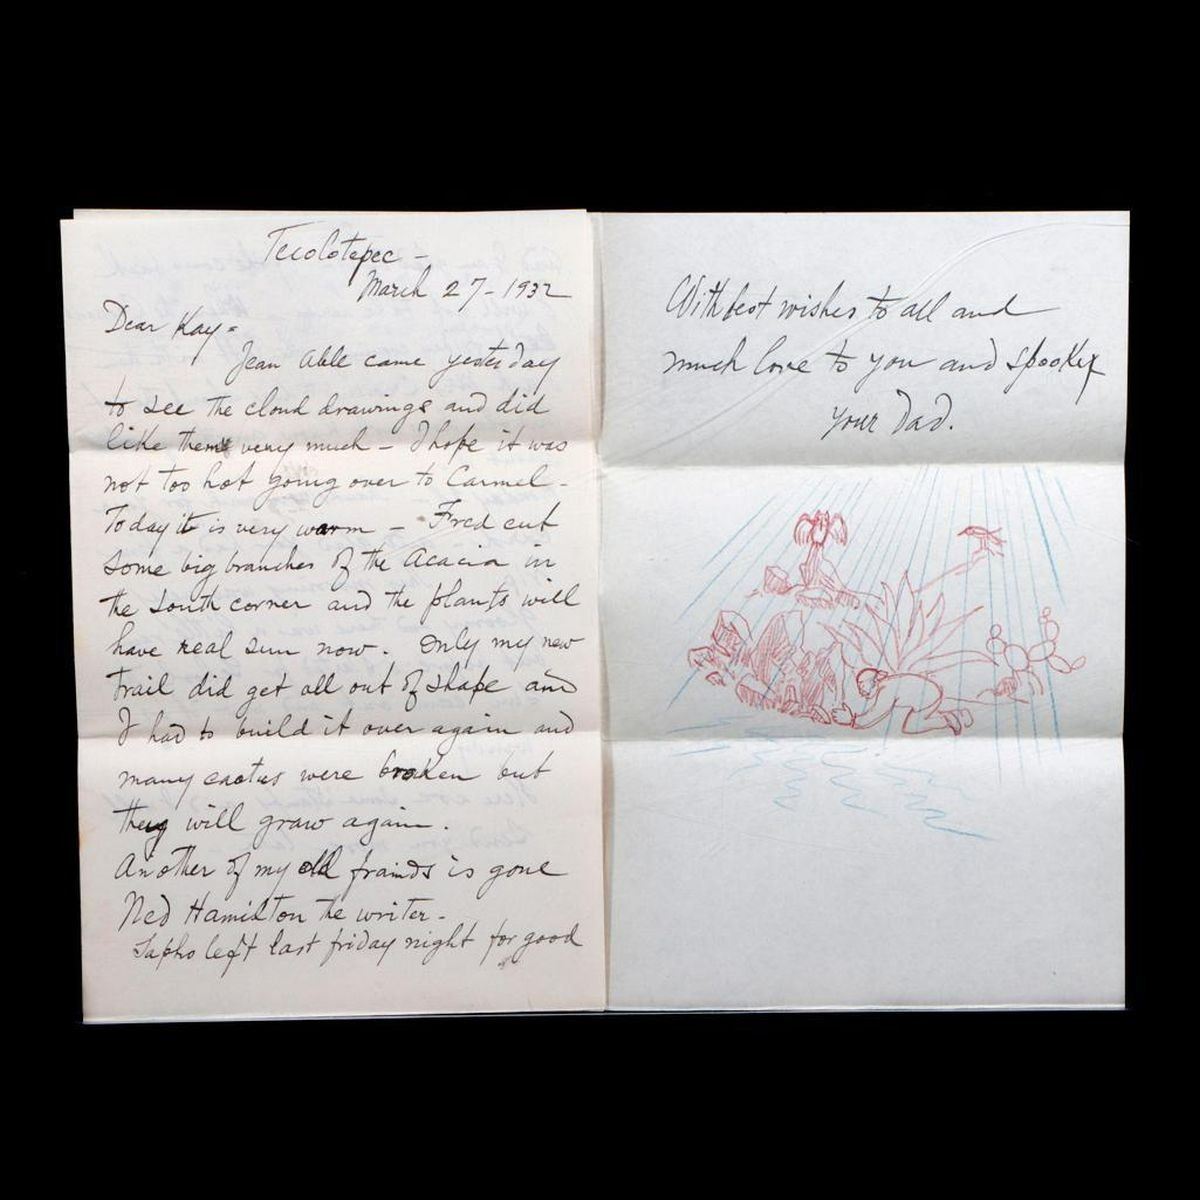 Tecolotepec -
March 27 - 1932
Dear Kay =
Jean Able came yesterday
to see the cloud drawings and did
like them very much - I hope it was
not too hot going over to Carmel -
Today it is very warm - Fred cut
some big branches of the Acacia in
the south corner and the plants will
have real sun now. Only my new
trail did get all out of shape and
I had to build it over again and
many cactus were broken but
they will graw again.
Another of my old frainds is gone
Ned Hamilton the writer -
Sapho left last friday night for good
With best wishes to all and
much love to you and Spookey
your Dad.